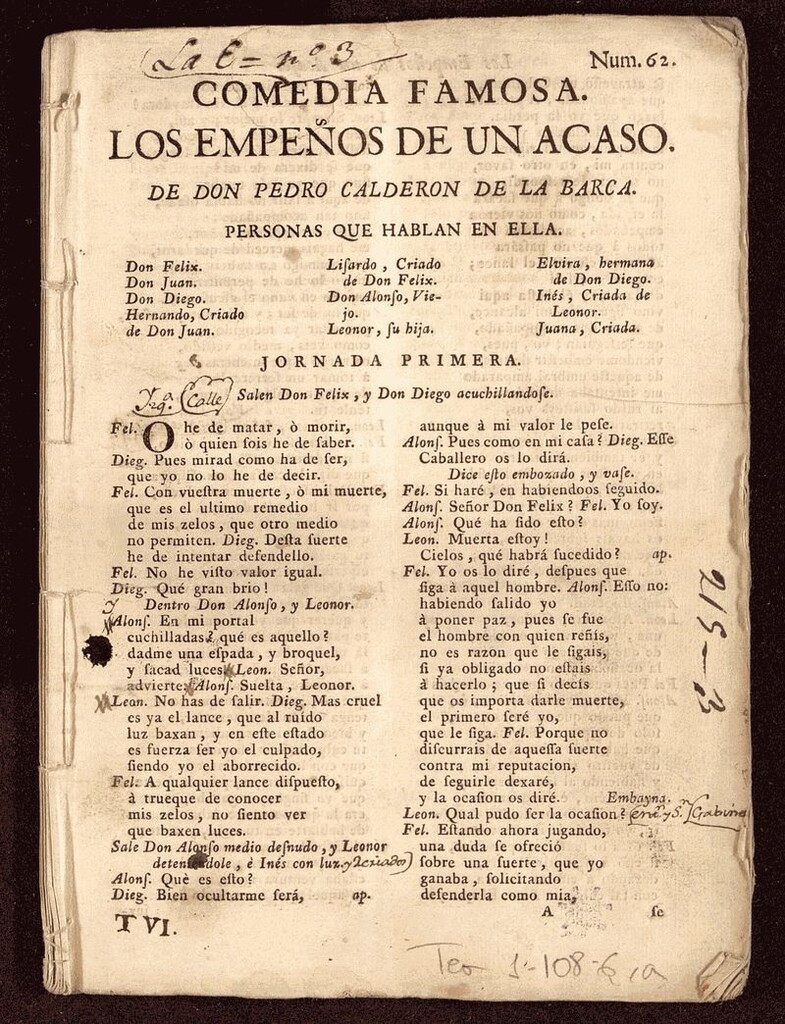 La 6 = nº 3
Num. 62.
COMEDIA FAMOSA.
LOS EMPEÑOS DE UN ACASO.
DE DON PEDRO CALDERON DE LA BARCA.
PERSONAS QUE HABLAN EN ELLA.
Don Felix.
Don Juan.
Don Diego.
Hernando, Criado
de Don Juan.
Liſardo, Criado
de Don Felix.
Don Alonſo, Vie-
jo.
Leonor, ſu hija.
Elvira, hermana
de Don Diego.
Inés, Criada de
Leonor.
Juana, Criada.
JORNADA PRIMERA.
Calle Salen Don Felix, y Don Diego acuchillandoſe.
Fel. O he de matar, ò morir,
ò quien ſois he de ſaber.
Dieg. Pues mirad como ha de ſer,
que yo no lo he de decir.
Fel. Con vueſtra muerte, ò mi muerte,
que es el ultimo remedio
de mis zelos, que otro medio
no permiten. Dieg. Deſta ſuerte
he de intentar defendello.
Fel. No he viſto valor igual.
Dieg. Qué gran brio!
Y Dentro Don Alonſo, y Leonor.
Alonſ. En mi portal
cuchilladas? qué es aquello?
dadme una eſpada, y broquel,
y ſacad luces. Leon. Señor,
advierte. Alonſ. Suelta, Leonor.
Leon. No has de ſalir. Dieg. Mas cruel
es ya el lance, que al ruído
luz baxan, y en eſte eſtado
es fuerza ſer yo el culpado,
ſiendo yo el aborrecido.
Fel. A qualquier lance diſpueſto,
à trueque de conocer
mis zelos, no ſiento ver
que baxen luces.
Sale Don Alonſo medio deſnudo, y Leonor
deteniendole, è Inés con luz. y 2 criados
Alonſ. Què es eſto?
Dieg. Bien ocultarme ſerá, ap.
T VI.
aunque à mi valor le peſe.
Alonſ. Pues como en mi caſa? Dieg. Eſſe
Caballero os lo dirá.
Dice eſto embozado, y vaſe.
Fel. Si haré, en habiendoos ſeguido.
Alonſ. Señor Don Felix? Fel. Yo ſoy.
Alonſ. Qué ha ſido eſto?
Leon. Muerta eſtoy!
Cielos, qué habrá ſucedido? ap.
Fel. Yo os lo diré, deſpues que
ſiga à aquel hombre. Alonſ. Eſſo no:
habiendo ſalido yo
à poner paz, pues ſe fue
el hombre con quien reñís,
no es razon que le ſigais,
ſi ya obligado no eſtais
à hacerlo; que ſi decís
que os importa darle muerte,
el primero ſeré yo,
que le ſiga. Fel. Porque no
diſcurrais de aqueſſa ſuerte
contra mi reputacion,
de ſeguirle dexaré,
y la ocaſion os diré. Embayna.
Leon. Qual pudo ſer la ocaſion?
Fel. Eſtando ahora jugando,
una duda ſe ofreció
ſobre una ſuerte, que yo
ganaba, ſolicitando
defenderla como mia,
A ſe
215-3
Tea 1-108-6, a